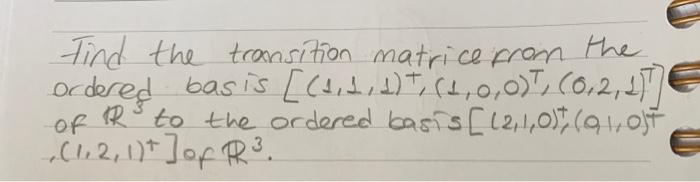 Find the transition matrice from the
ordered basis [(1,1,1)ᵀ, (1,0,0)ᵀ, (0,2,1)ᵀ]
of ℝ³ to the ordered basis [(2,1,0)ᵀ, (0,1,0)ᵀ
,(1,2,1)ᵀ] of ℝ³.